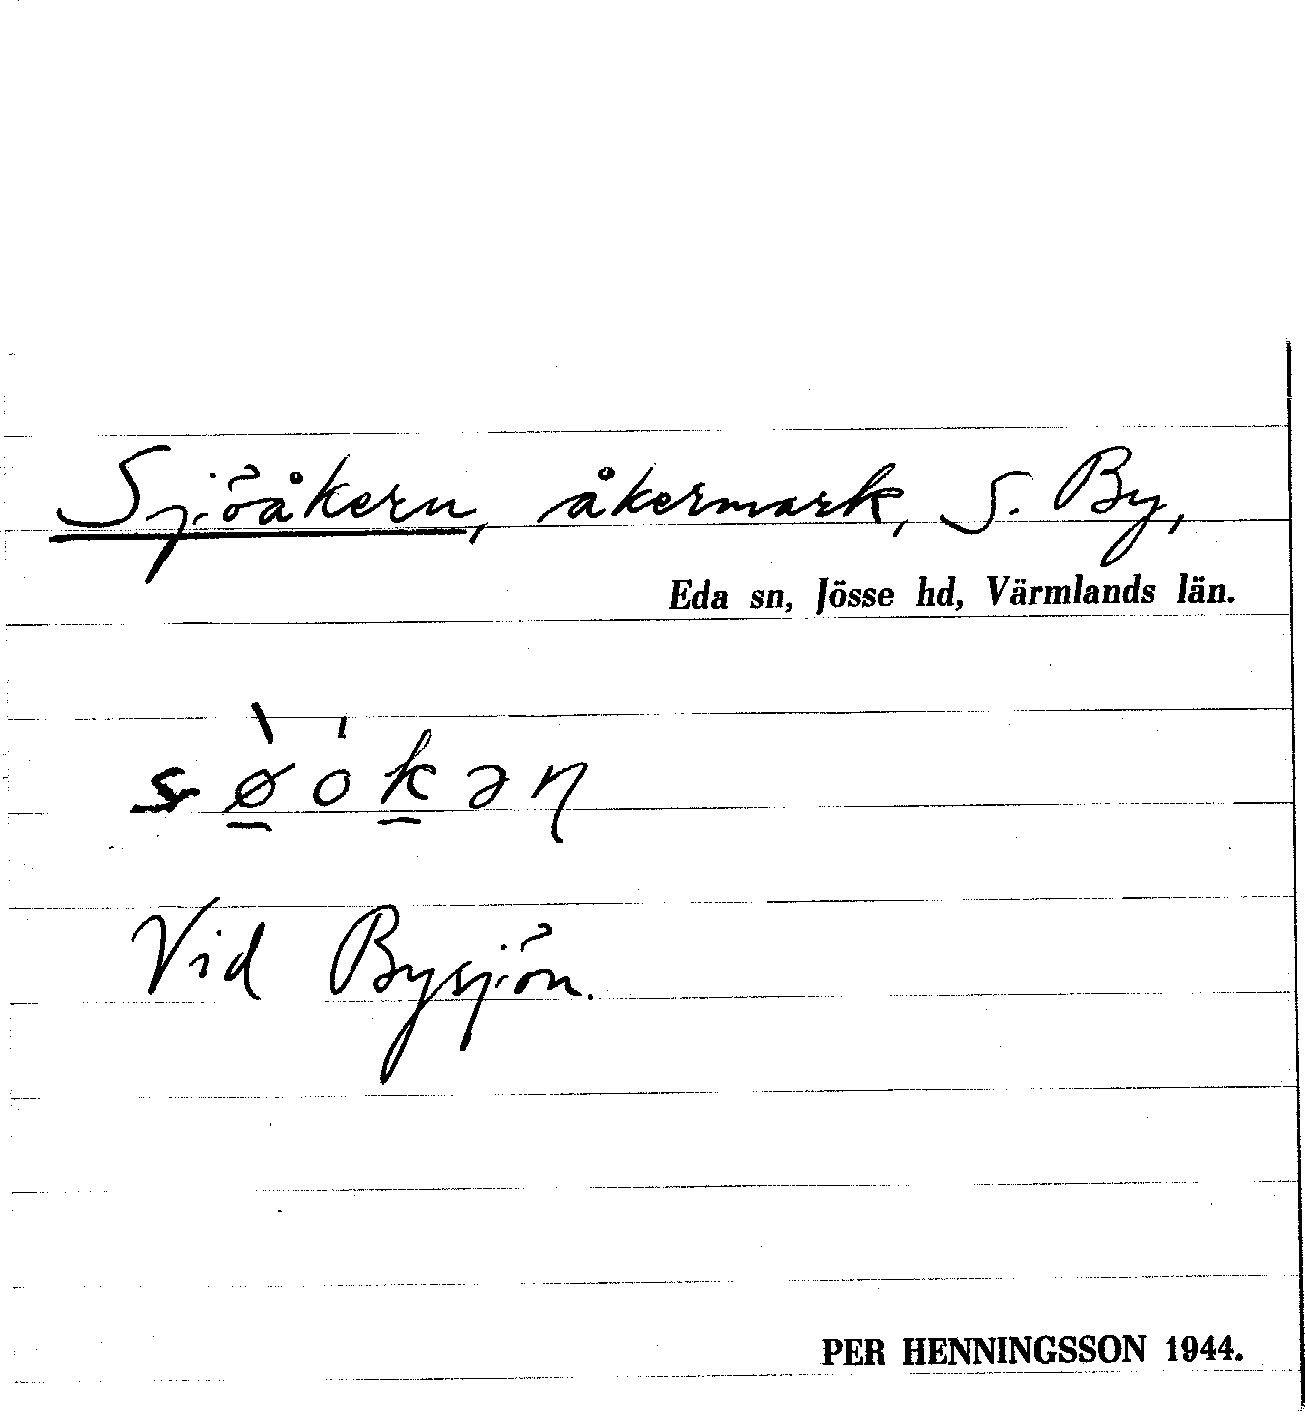 Sjöåkern, åkermark, S. By,
Eda sn, Jösse hd, Värmlands län.
sø̠̀o̍k̠əɳ
Vid Bysjön.
PER HENNINGSSON 1944.